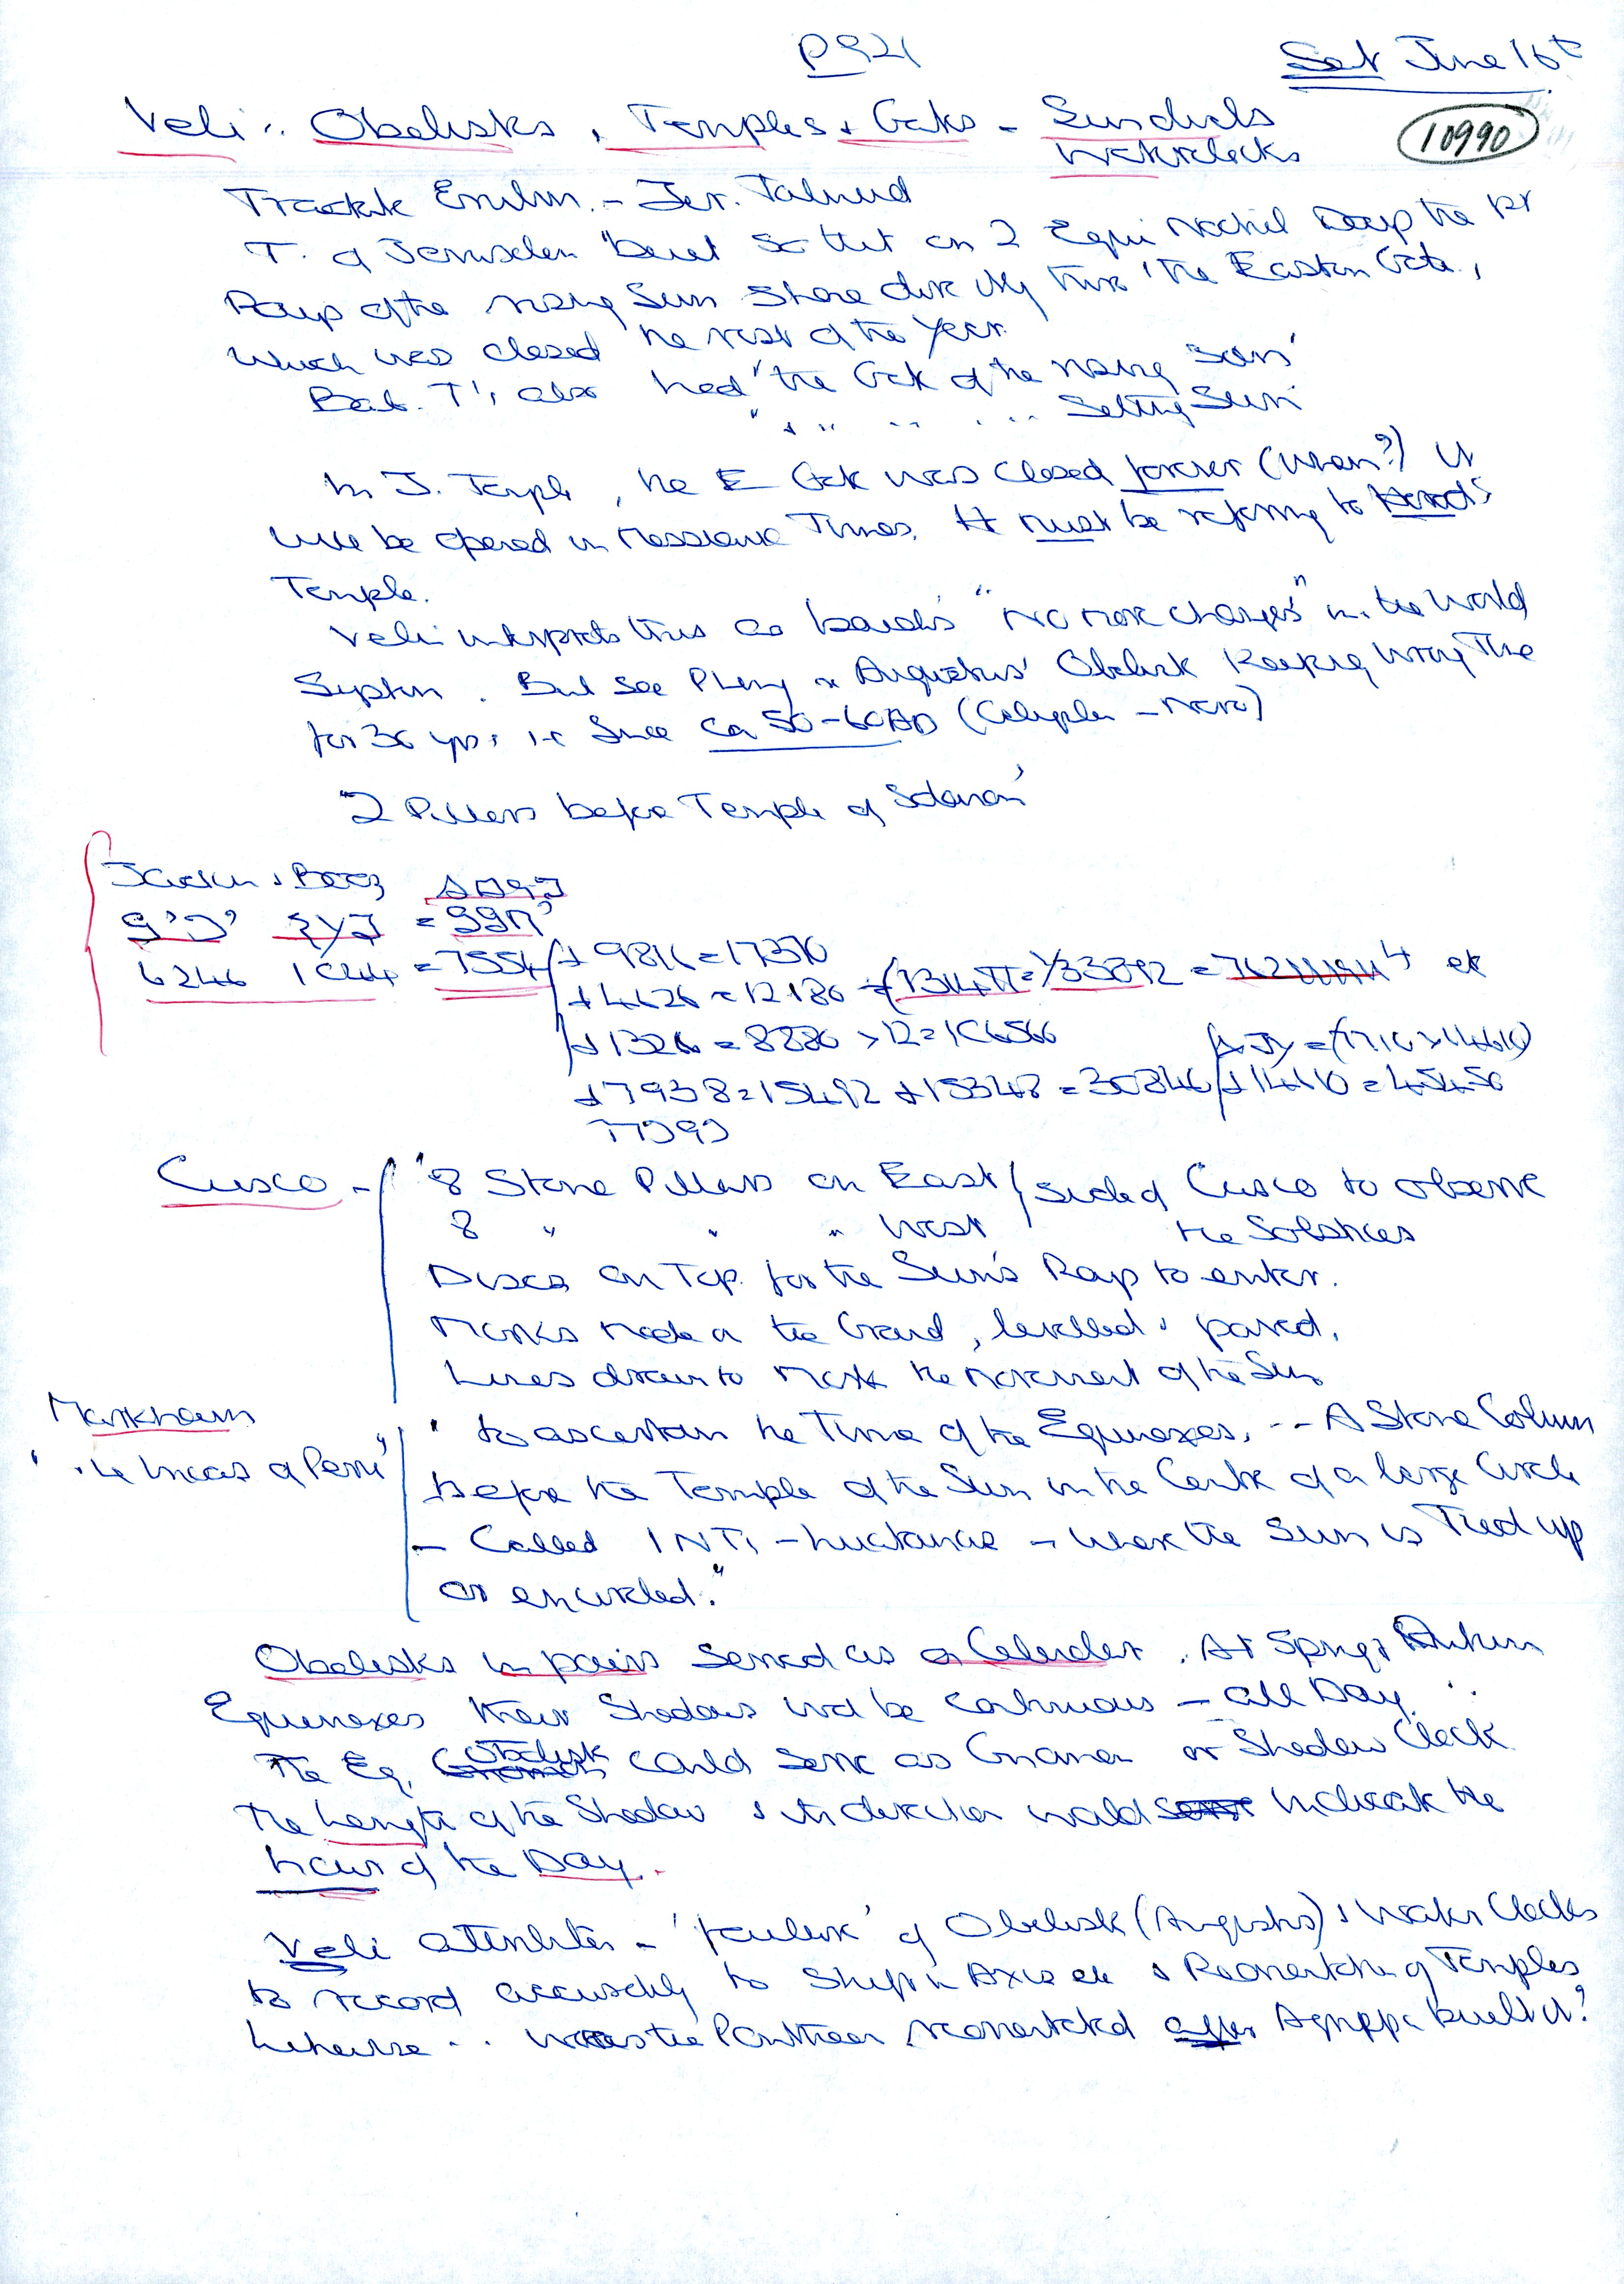 P921
Sat June 16t
Veli :. Obelisks, Temples + Gates - Sundials
Waterclocks
10990
Tractate - Jer. Talmud
T. of Jerusalem "built so that on 2 Equinoctial Days the 1st
Rays of the rising Sun shone directly thro' the Eastern Gate,
which was closed the rest of the Year.
Bab. T's also had "the Gate of the rising Sun"
" + " " " ... Setting Sun
In J. Temple, the E Gate was closed forever (when?) It
will be opened in Messianic Times. It must be referring to Herod's
Temple.
Veli interprets this as "No more changes" in the World
System. But see Pliny on Augustus' Obelisk Keeping wrong Time
for 30 yrs, i.e since ca 50-60AD (Caligula - Nero)
"2 Pillars before Temple of Solomon'
Jachin + Boaz
6246 1044 = 7554 + 9816 = 17370
+ 4626 = 12180
+ 1326 = 8880 × 12 = 106566
+ 7938 = 15492 + 15348 = 30846 + 14610 = 45456
Cusco - "8 Stone Pillars on East side of Cusco to observe
8 " " " West the Solstices
Discs on Top for the Sun's Rays to enter.
Marks made on the Ground, levelled + paved.
Lines drawn to mark the movement of the Sun
Markham
'The Incas of Peru'
"to ascertain the Time of the Equinoxes, -- A Stone Column
before the Temple of the Sun in the Centre of a large Circle
- Called INTI-huatana - where the Sun is Tied up
or encircled."
Obelisks in pairs served as a Calendar. At Spring + Autumn
Equinoxes their Shadows wd be continuous - all Day :.
The Eg. Obelisk could serve as Gnomon or Shadow Clock
The Length of the Shadow + its direction would indicate the
hour of the Day.
Veli attributes - 'failure' of Obelisk (Augustus) + Water Clocks
to record accurately to Shift in Axis etc + Reorientation of Temples
likewise .. was the Pantheon reorientated after Agrippa built it?